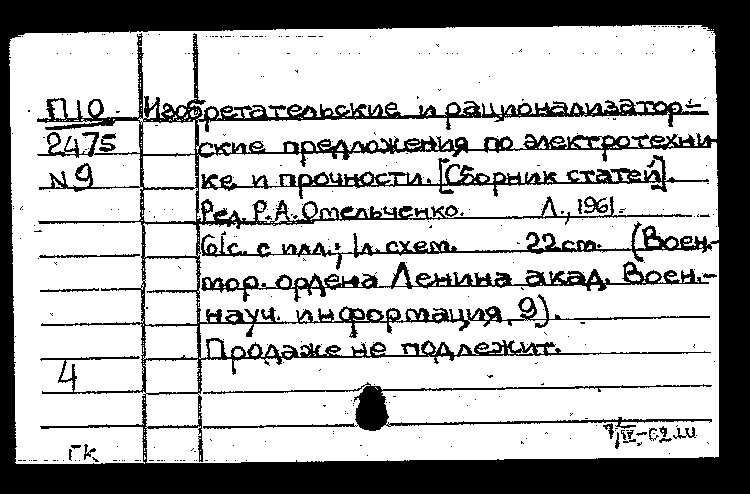 П10 Изобретательские и рационализатор-
2475 ские предложения по электротехни-
N9 ке и прочности. [Сборник статей].
Ред. Р.А. Омельченко. Л., 1961.
61с. с илл.; 1л. схем. 22cm. (Воен.-
мор. ордена Ленина акад. Воен.-
науч. информация, 9).
Продаже не подлежит.
4
ГК